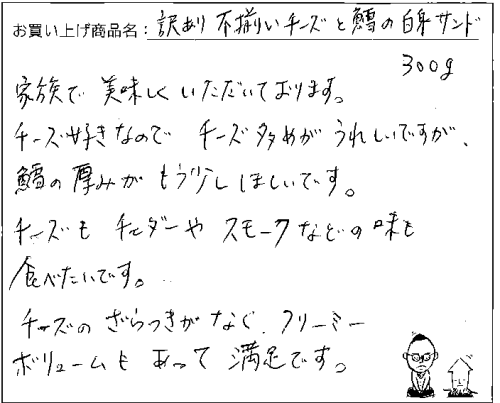 お買い上げ商品名：訳あり 不揃いチーズと鱈の白身サンド
300g
家族で 美味しくいただいております。
チーズ好きなので チーズ多めが うれしいですが、
鱈の厚みが もう少しほしいです。
チーズも チェダーや スモークなどの味も
食べたいです。
チーズの ざらつきがなく、クリーミー
ボリュームも あって 満足です。